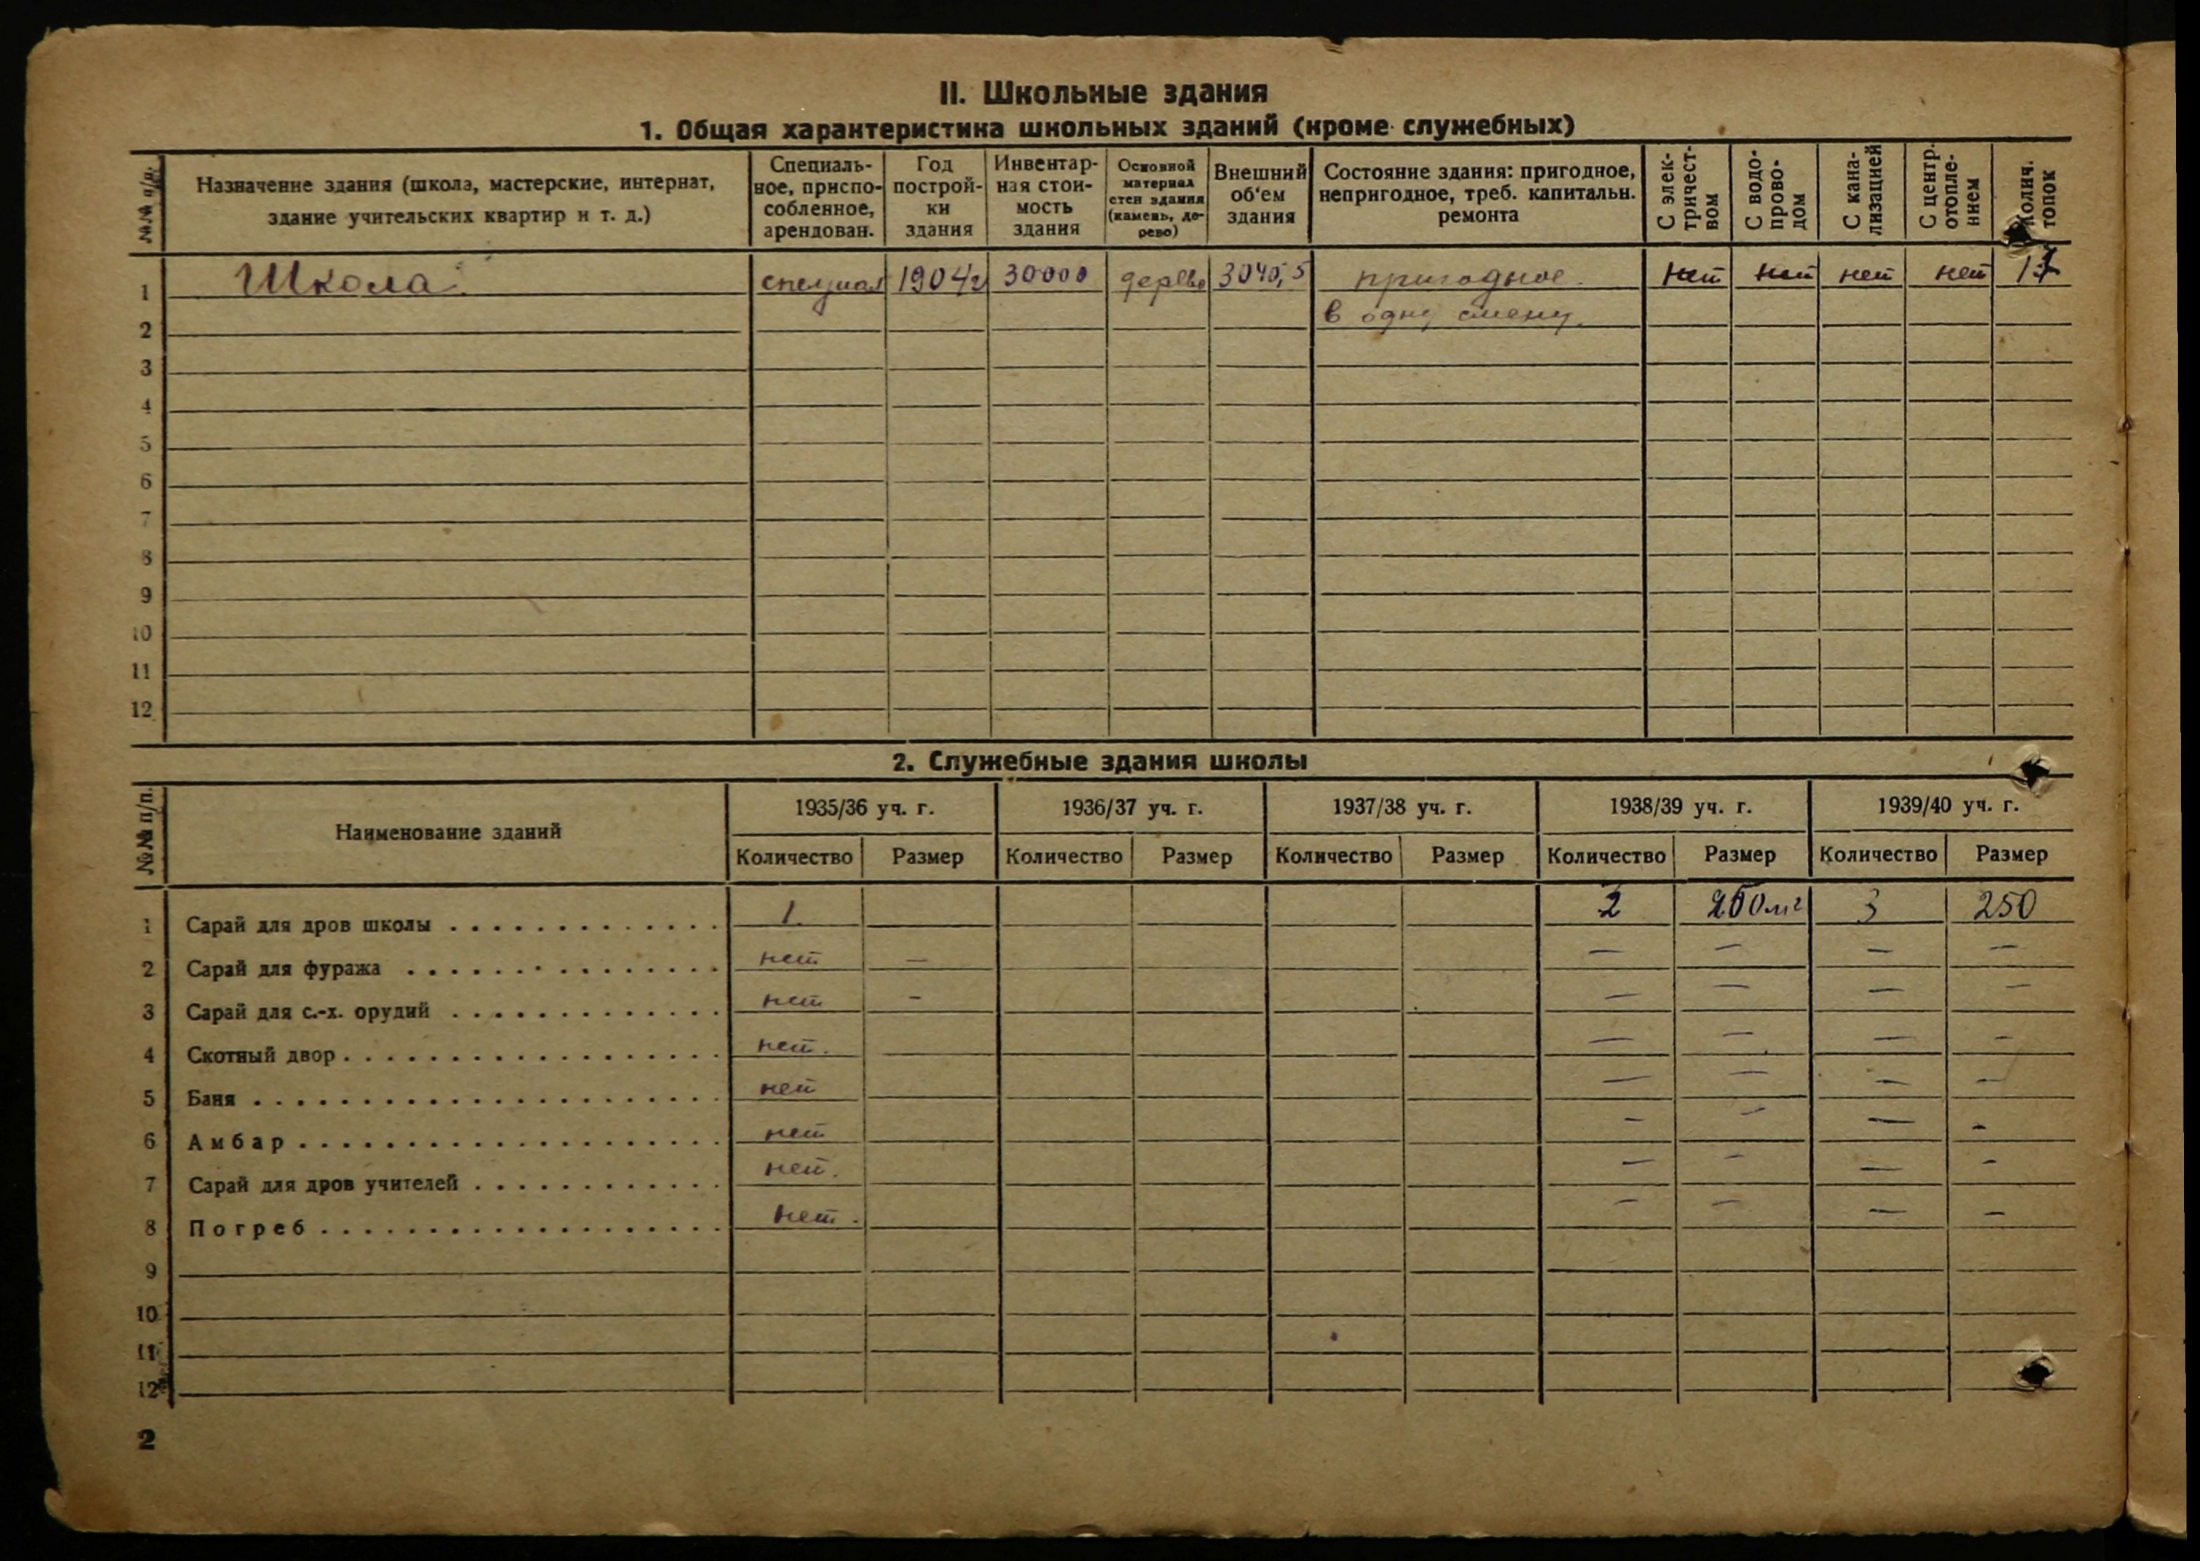 II. Школьные здания
1. Общая характеристика школьных зданий (кроме служебных)
№№ п/п.
Назначение здания (школа, мастерские, интернат,
здание учительских квартир и т. д.)
Специаль-
ное, приспо-
собленное,
арендован.
Год
построй-
ки
здания
Инвентар-
ная стои-
мость
здания
Основной
материал
стен здания
(камень, де-
рево)
Внешний
об'ем
здания
Состояние здания: пригодное,
непригодное, треб. капитальн.
ремонта
С элек-
тричест-
вом
С водо-
прово-
дом
С кана-
лизацией
С центр.
отопле-
нием
Колич.
топок
1 Школа специал 1904г 30000 дерево 3040,5 пригодное нет нет нет нет
2 в одну смену.
3
4
5
6
7
8
9
10
11
12
2. Служебные здания школы
№№ п/п.
Наименование зданий
1935/36 уч. г. 1936/37 уч. г. 1937/38 уч. г. 1938/39 уч. г. 1939/40 уч. г.
Количество Размер Количество Размер Количество Размер Количество Размер Количество Размер
1 Сарай для дров школы . . . . . . . . . . . . . 1. 2 м² 3 250
2 Сарай для фуража . . . . . . . . . . . . . . . нет — — — — —
3 Сарай для с.-х. орудий . . . . . . . . . . . . . нет — — — — —
4 Скотный двор . . . . . . . . . . . . . . . . . . нет. — — — —
5 Баня . . . . . . . . . . . . . . . . . . . . . . нет — — — —
6 Амбар . . . . . . . . . . . . . . . . . . . . нет — — — —
7 Сарай для дров учителей . . . . . . . . . . . . нет. — — — —
8 Погреб . . . . . . . . . . . . . . . . . . . нет. — — — —
9
10
11
12
2